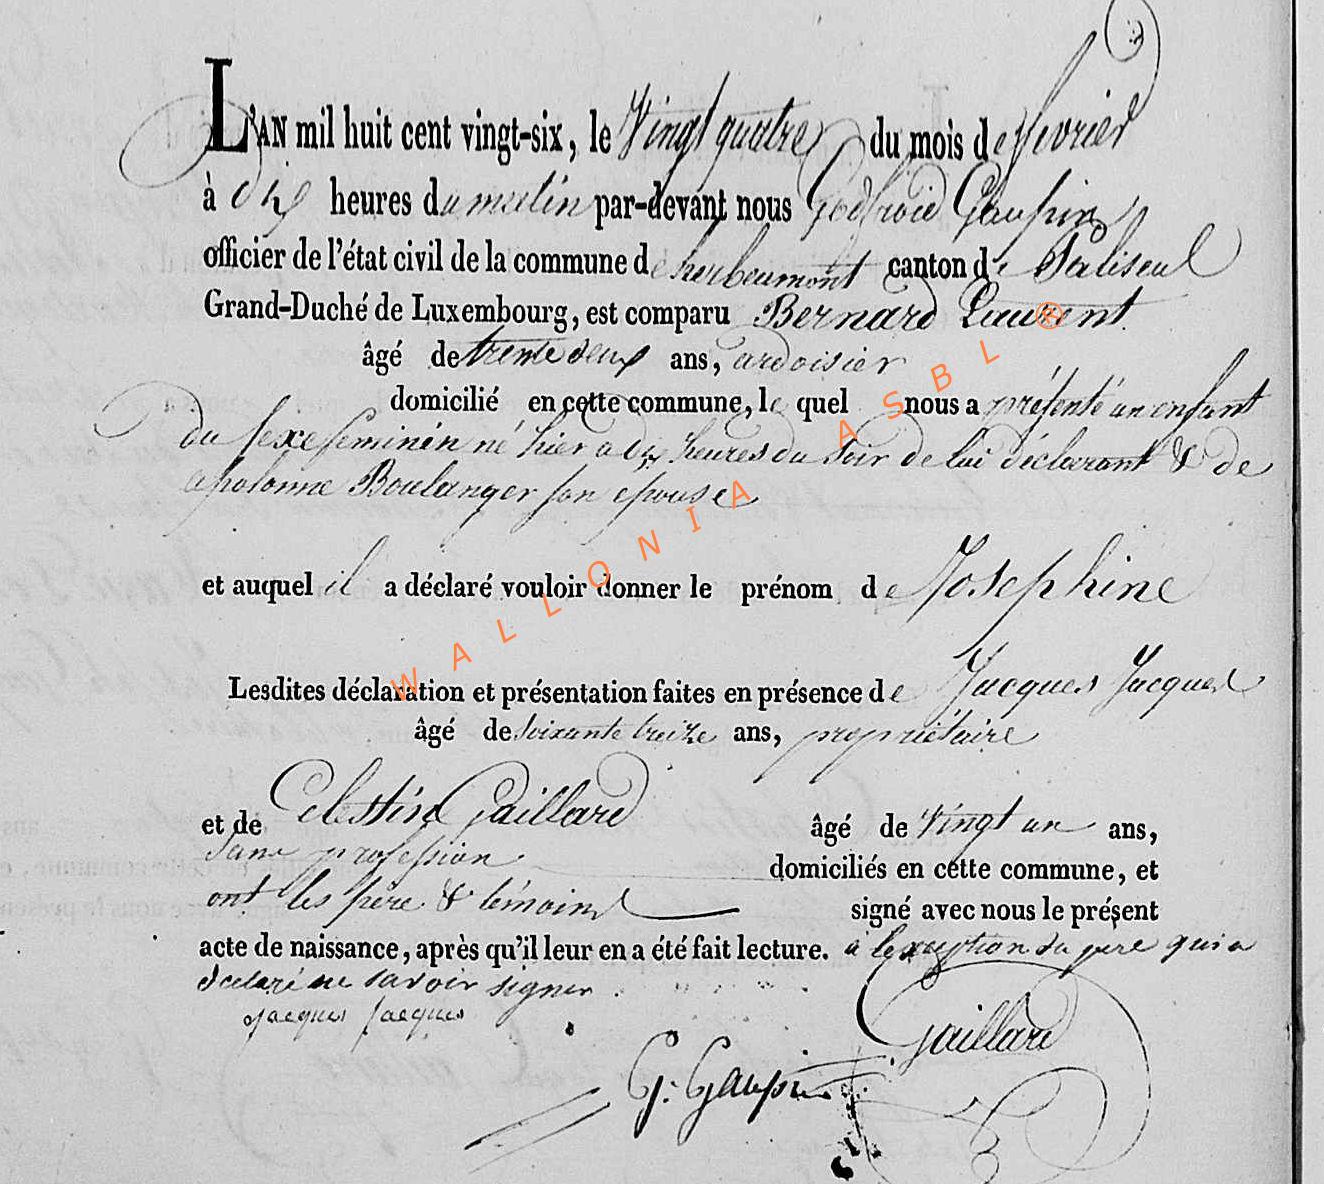 L'AN mil huit cent vingt-six, le Vingt quatre du mois de fevrier
à dix heures du matin par-devant nous Godfroid Gaupin
officier de l'état civil de la commune de herbeumont canton de Paliseul
Grand-Duché de Luxembourg, est comparu Bernard Laurent
âgé de trente deux ans, ardoisier
domicilié en cette commune, le quel nous a présenté un enfant
du sexe féminin né hier a dix heures du Soir de lui déclarant & de
apolonne Boulanger son epouse
et auquel il a déclaré vouloir donner le prénom de Josephine
Lesdites déclaration et présentation faites en présence de Jacques Jacques
âgé de soixante treize ans, propriétaire
et de Celestin Gaillard âgé de vingt un ans,
Sans profession domiciliés en cette commune, et
ont les père & témoins signé avec nous le présent
acte de naissance, après qu'il leur en a été fait lecture. à l'exception du pere qui a
declaré ne savoir signer
Jacques Jacques
Gaillard
G. Gaupin
WALLONIA ASBL ®